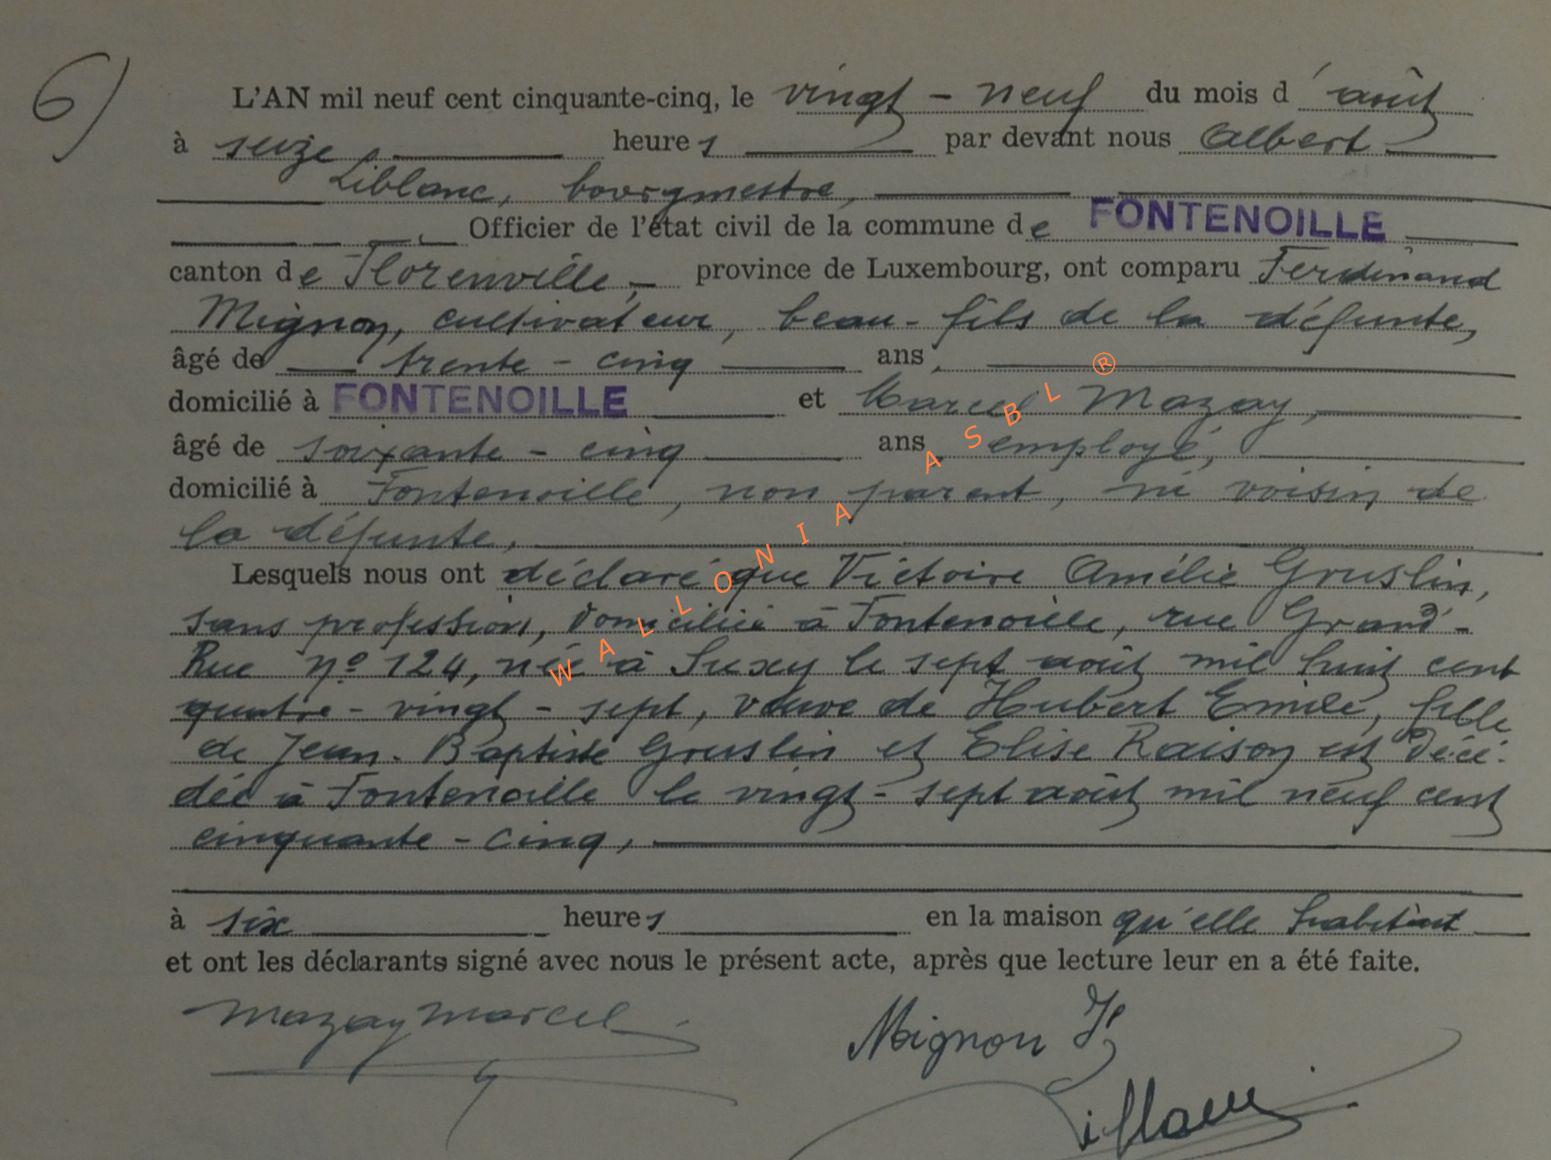 6)
L'AN mil neuf cent cinquante-cinq, le vingt - neuf du mois d'août
à seize heures par devant nous Albert
Liblanc, bourgmestre,
Officier de l'état civil de la commune de FONTENOILLE
canton de Florenville, province de Luxembourg, ont comparu Ferdinand
Mignon, cultivateur, beau-fils de la défunte,
âgé de trente - cinq ans,
domicilié à FONTENOILLE et Marcel Mazay,
âgé de soixante - cinq ans, employé,
domicilié à Fontenoille, non parent, ni voisin de
la défunte,
Lesquels nous ont déclaré que Victoire Amélie Gruslin,
sans profession, domiciliée à Fontenoille, rue Grand'-
Rue nº 124, née à Suxy le sept août mil huit cent
quatre - vingt - sept, veuve de Hubert Emile, fille
de Jean-Baptiste Gruslin et Elise Raison est décé-
dée à Fontenoille le vingt - sept août mil neuf cent
cinquante - cinq,
à six heures en la maison qu'elle habitait
et ont les déclarants signé avec nous le présent acte, après que lecture leur en a été faite.
Mazay Marcel Mignon F
Liblanc
WALLONIA ASBL ®